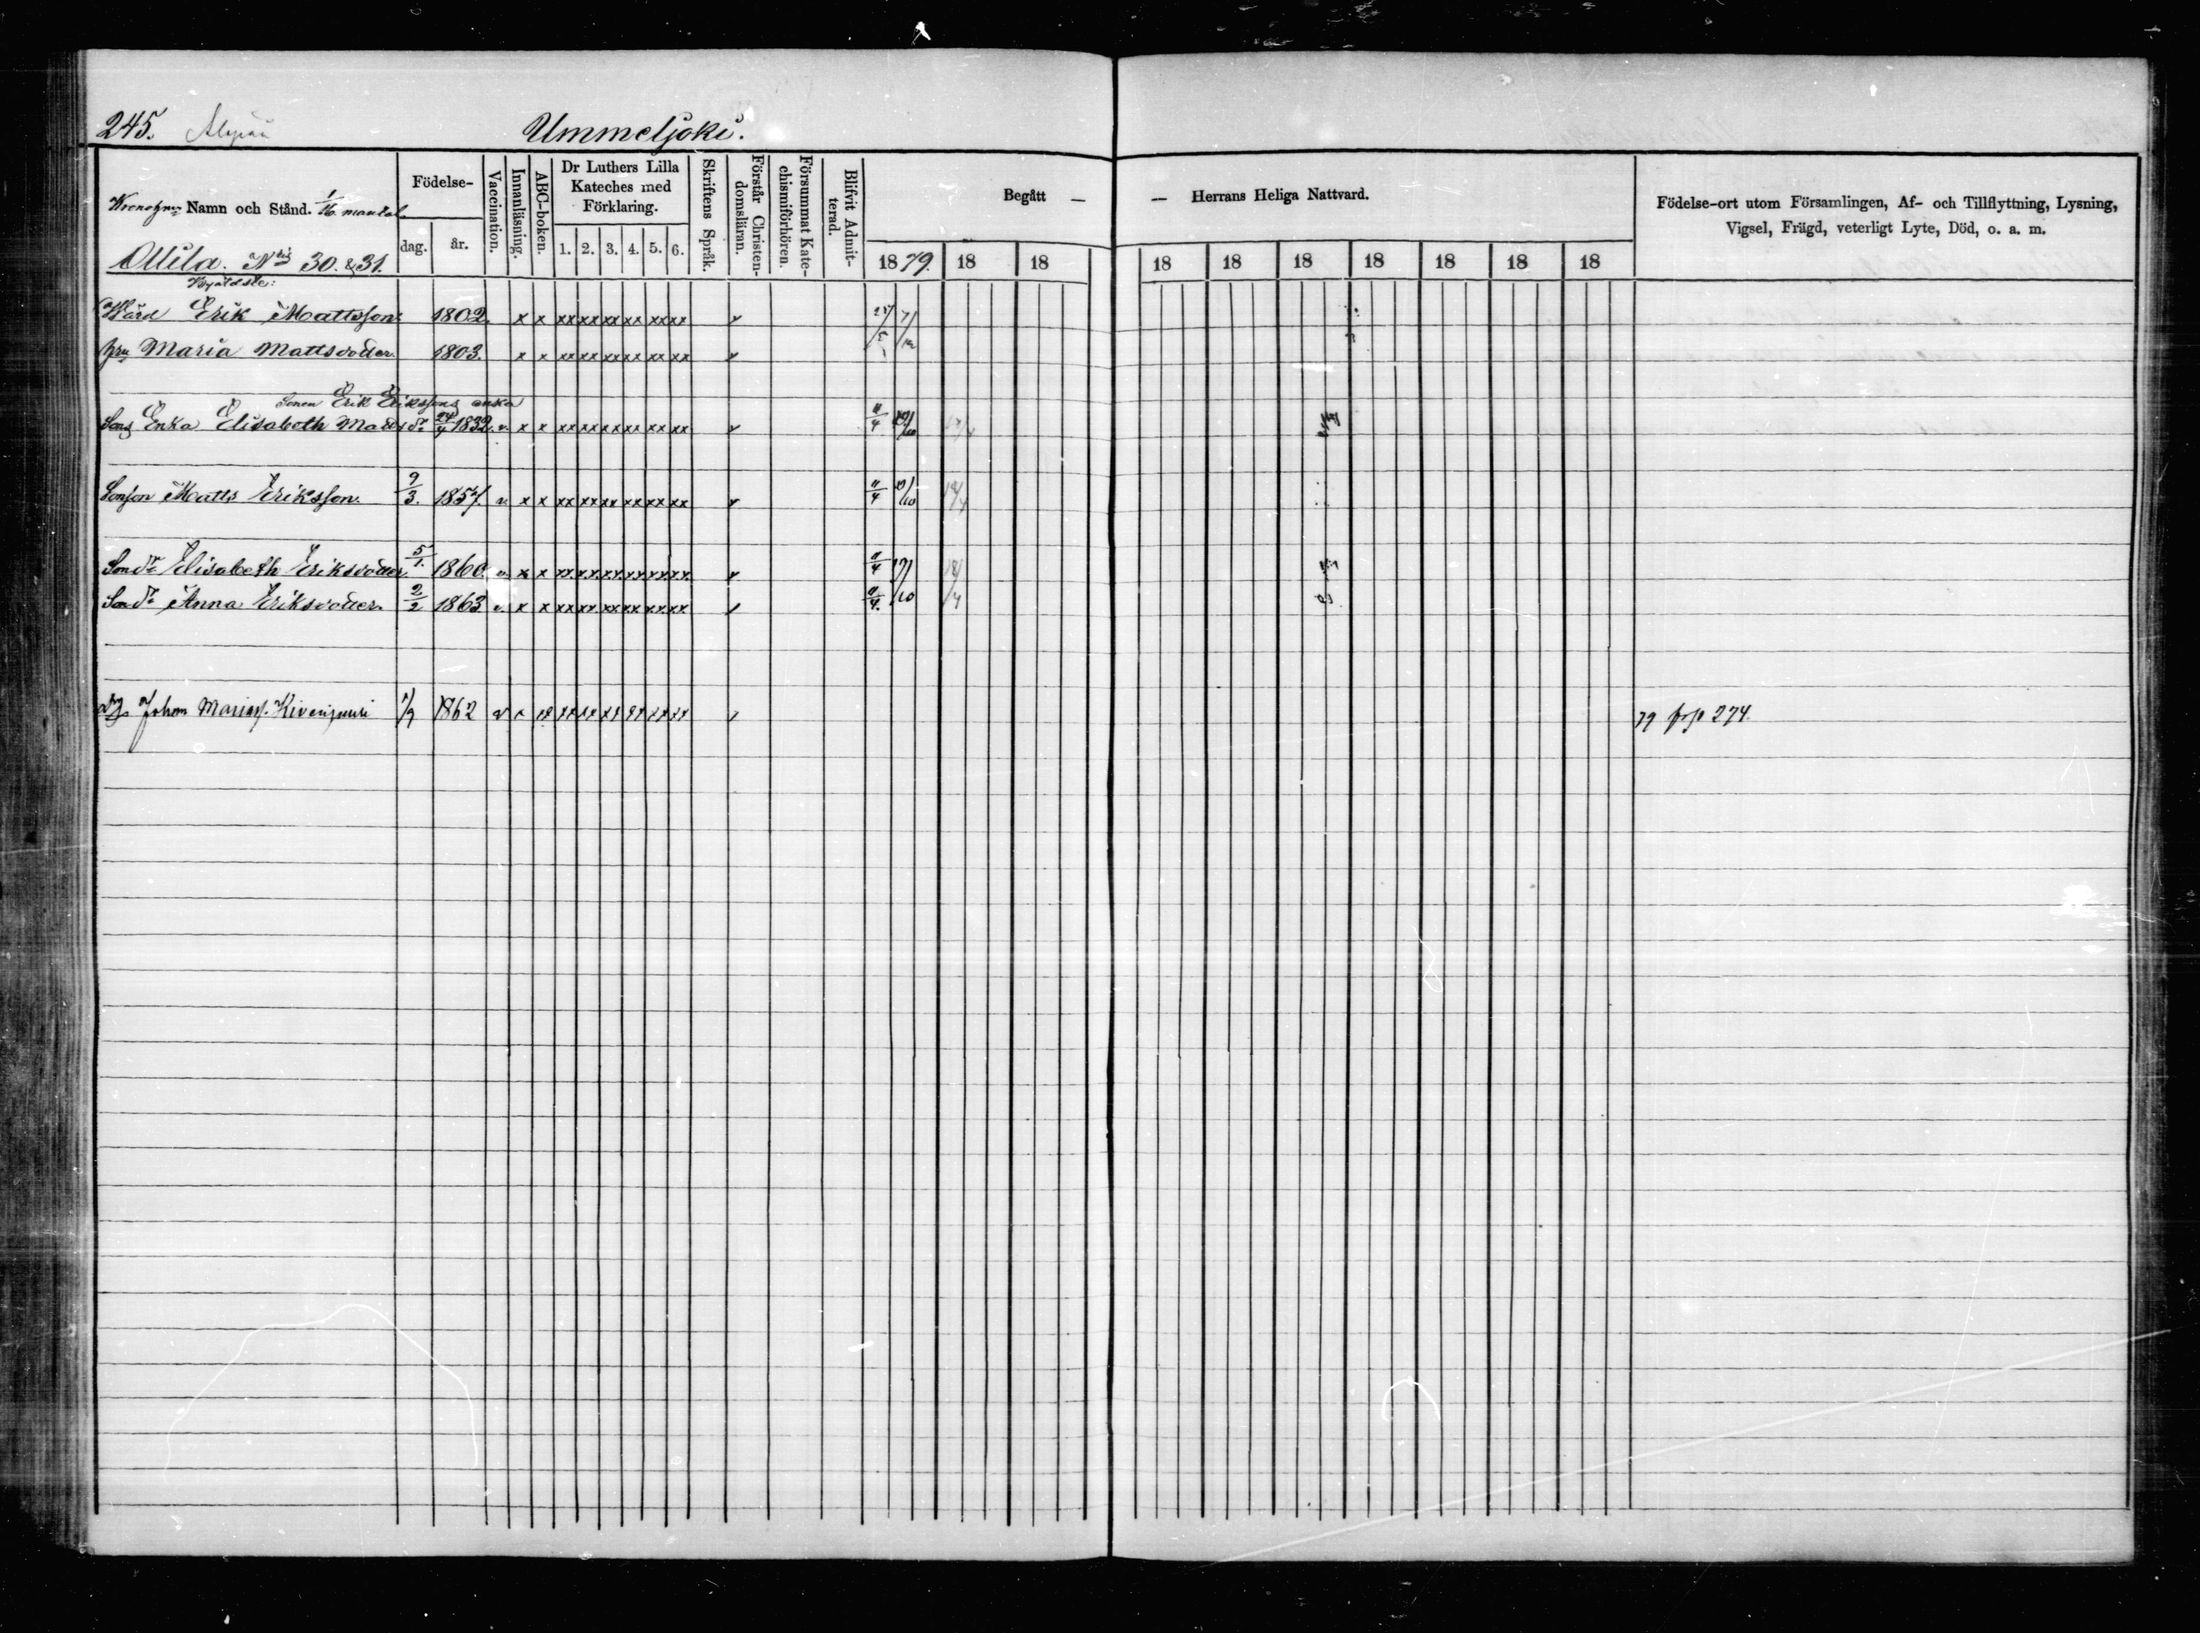 245. Ummeljoki.
Namn och Stånd. 1/16 mantal.
Födelse-
dag. år.
Vaccination.
Innanläsning.
ABC-boken.
Dr Luthers Lilla
Kateches med
Förklaring.
1. 2. 3. 4. 5. 6.
Skriftens Språk.
Förstår Christen-
domsläran.
Försummat Kate-
chismiförhören.
Blifvit Admit-
terad.
Begått — — Herrans Heliga Nattvard.
1879. 18 18 18 18 18 18 18 18 18
Födelse-ort utom Församlingen, Af- och Tillflyttning, Lysning,
Vigsel, Frägd, veterligt Lyte, Död, o. a. m.
Ollila. N:ris 30. & 31.
Erik Mattsson 1802. x x xx xx xx xx xx xx
hru Maria Mattsdotter. 1803. x x xx xx xx xx xx xx
Sonen Erik Erikssons enka
Sons Enka Elisabeth Matts dr 24/4 1832. v. x x xx xx xx xx xx xx 11/4
Sonson Matts Eriksson. 9/3. 1857. v x x xx xx xx xx xx xx 11/4
Son dr Elisabeth Eriksdotter 5/1. 1860. v. x x xx xx xx xx xx xx 11/4
Son dr Anna Eriksdotter. 2/2 1863 v. x x xx xx xx xx xx xx 11/4.
Johan 1862 v x
79 frp 274.